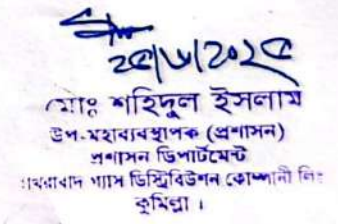 মোঃ শহিদুল ইসলাম
উপ-মহাব্যবস্থাপক (প্রশাসন)
প্রশাসন ডিপার্টমেন্ট
গ্যাস ডিস্ট্রিবিউশন কোম্পানী লিঃ
কুমিল্লা ।